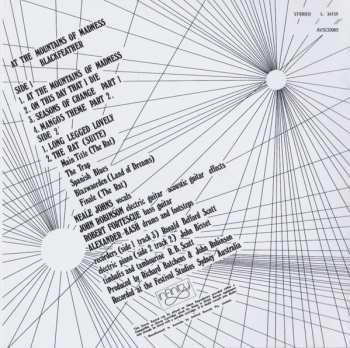 STEREO L 34159
AT THE MOUNTAINS OF MADNESS
BLACKFEATHER
SIDE 1
1. AT THE MOUNTAINS OF MADNESS
2. ON THIS DAY THAT I DIE
3. SEASONS OF CHANGE PART 1
4. MANGOS THEME PART 2.
SIDE 2
1. LONG LEGGED LOVELY
2. THE RAT (SUITE)
Main Title (The Rat)
The Trap
Spanish Blues
Blazwaorden (Land of Dreams)
Finale (The Rat)
NEALE JOHNS vocals
JOHN ROBINSON electric guitar acoustic guitar effects
ROBERT FORTESQUE bass guitar
ALEXANDER KASH drums and footsteps
recorders (side 1 track 3) Ronald Belford Scott
electric piano (side 2 track 2) John Bisset
timbails and tambourine B.R. Scott
Produced by Richard Batchens & John Robinson
Recorded at the Festival Studios Sydney Australia
infinity